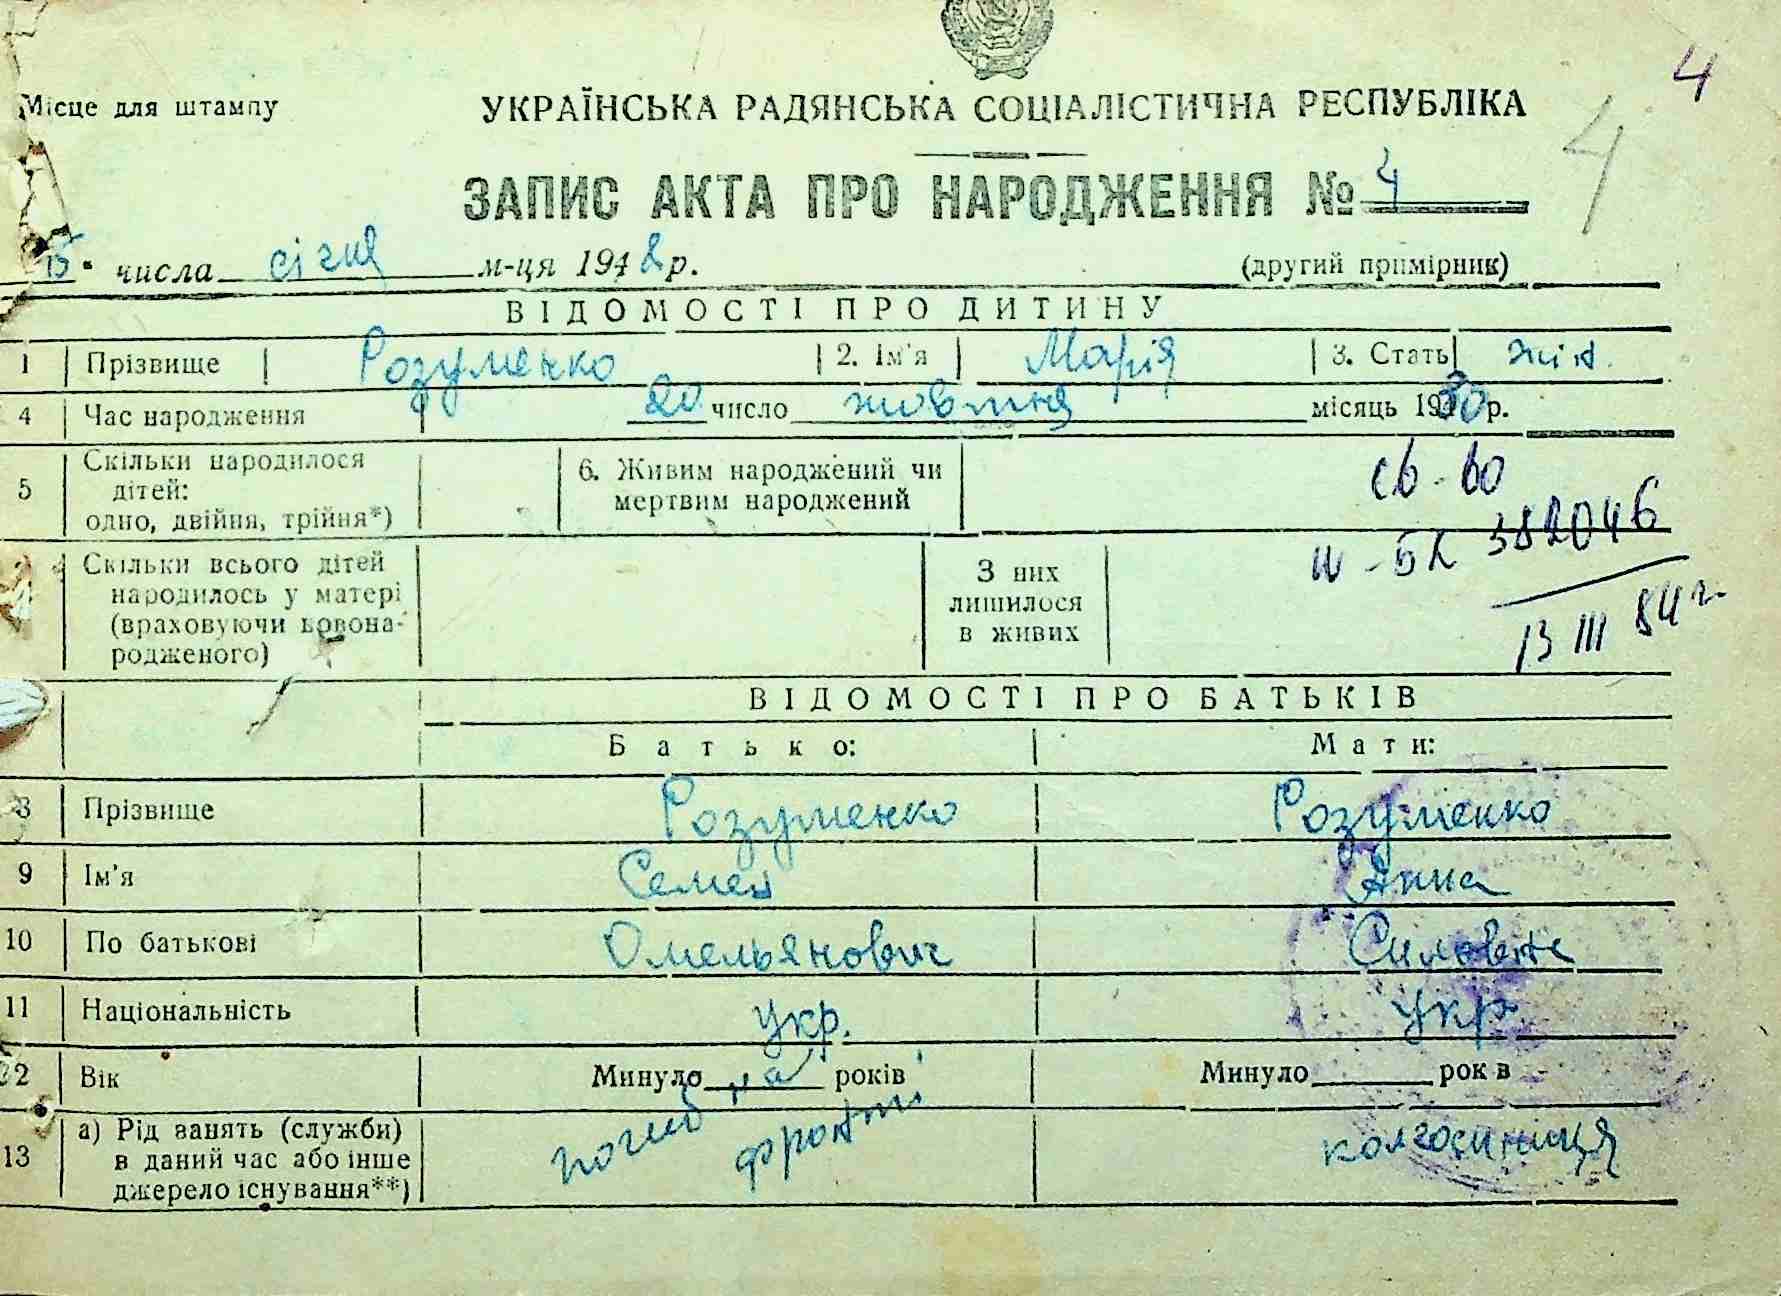 4
Місце для штампу
УКРАЇНСЬКА РАДЯНСЬКА СОЦІАЛІСТИЧНА РЕСПУБЛІКА
4
ЗАПИС АКТА ПРО НАРОДЖЕННЯ № 4
15 числа січня м-ця 1948 р.
(другий примірник)
ВІДОМОСТІ ПРО ДИТИНУ
1 Прізвище Розуменко 2. Ім'я Марія 3. Стать жін.
4 Час народження 20 число жовтня місяць 1930 р.
5 Скільки народилося дітей: одно, двійня, трійня*)
6. Живим народжений чи мертвим народжений
св-во
Скільки всього дітей народилось у матері (враховуючи новонародженого)
З них лишилося в живих
382046
13 III 84 г.
ВІДОМОСТІ ПРО БАТЬКІВ
Батько: Мати:
8 Прізвище Розуменко Розуменко
9 Ім'я Семен Анна
10 По батькові Омельянович
11 Національність укр. укр
12 Вік Минуло на років Минуло рок в
13 а) Рід занять (служби) в даний час або інше джерело існування**)
погиб фронті
колгоспниця